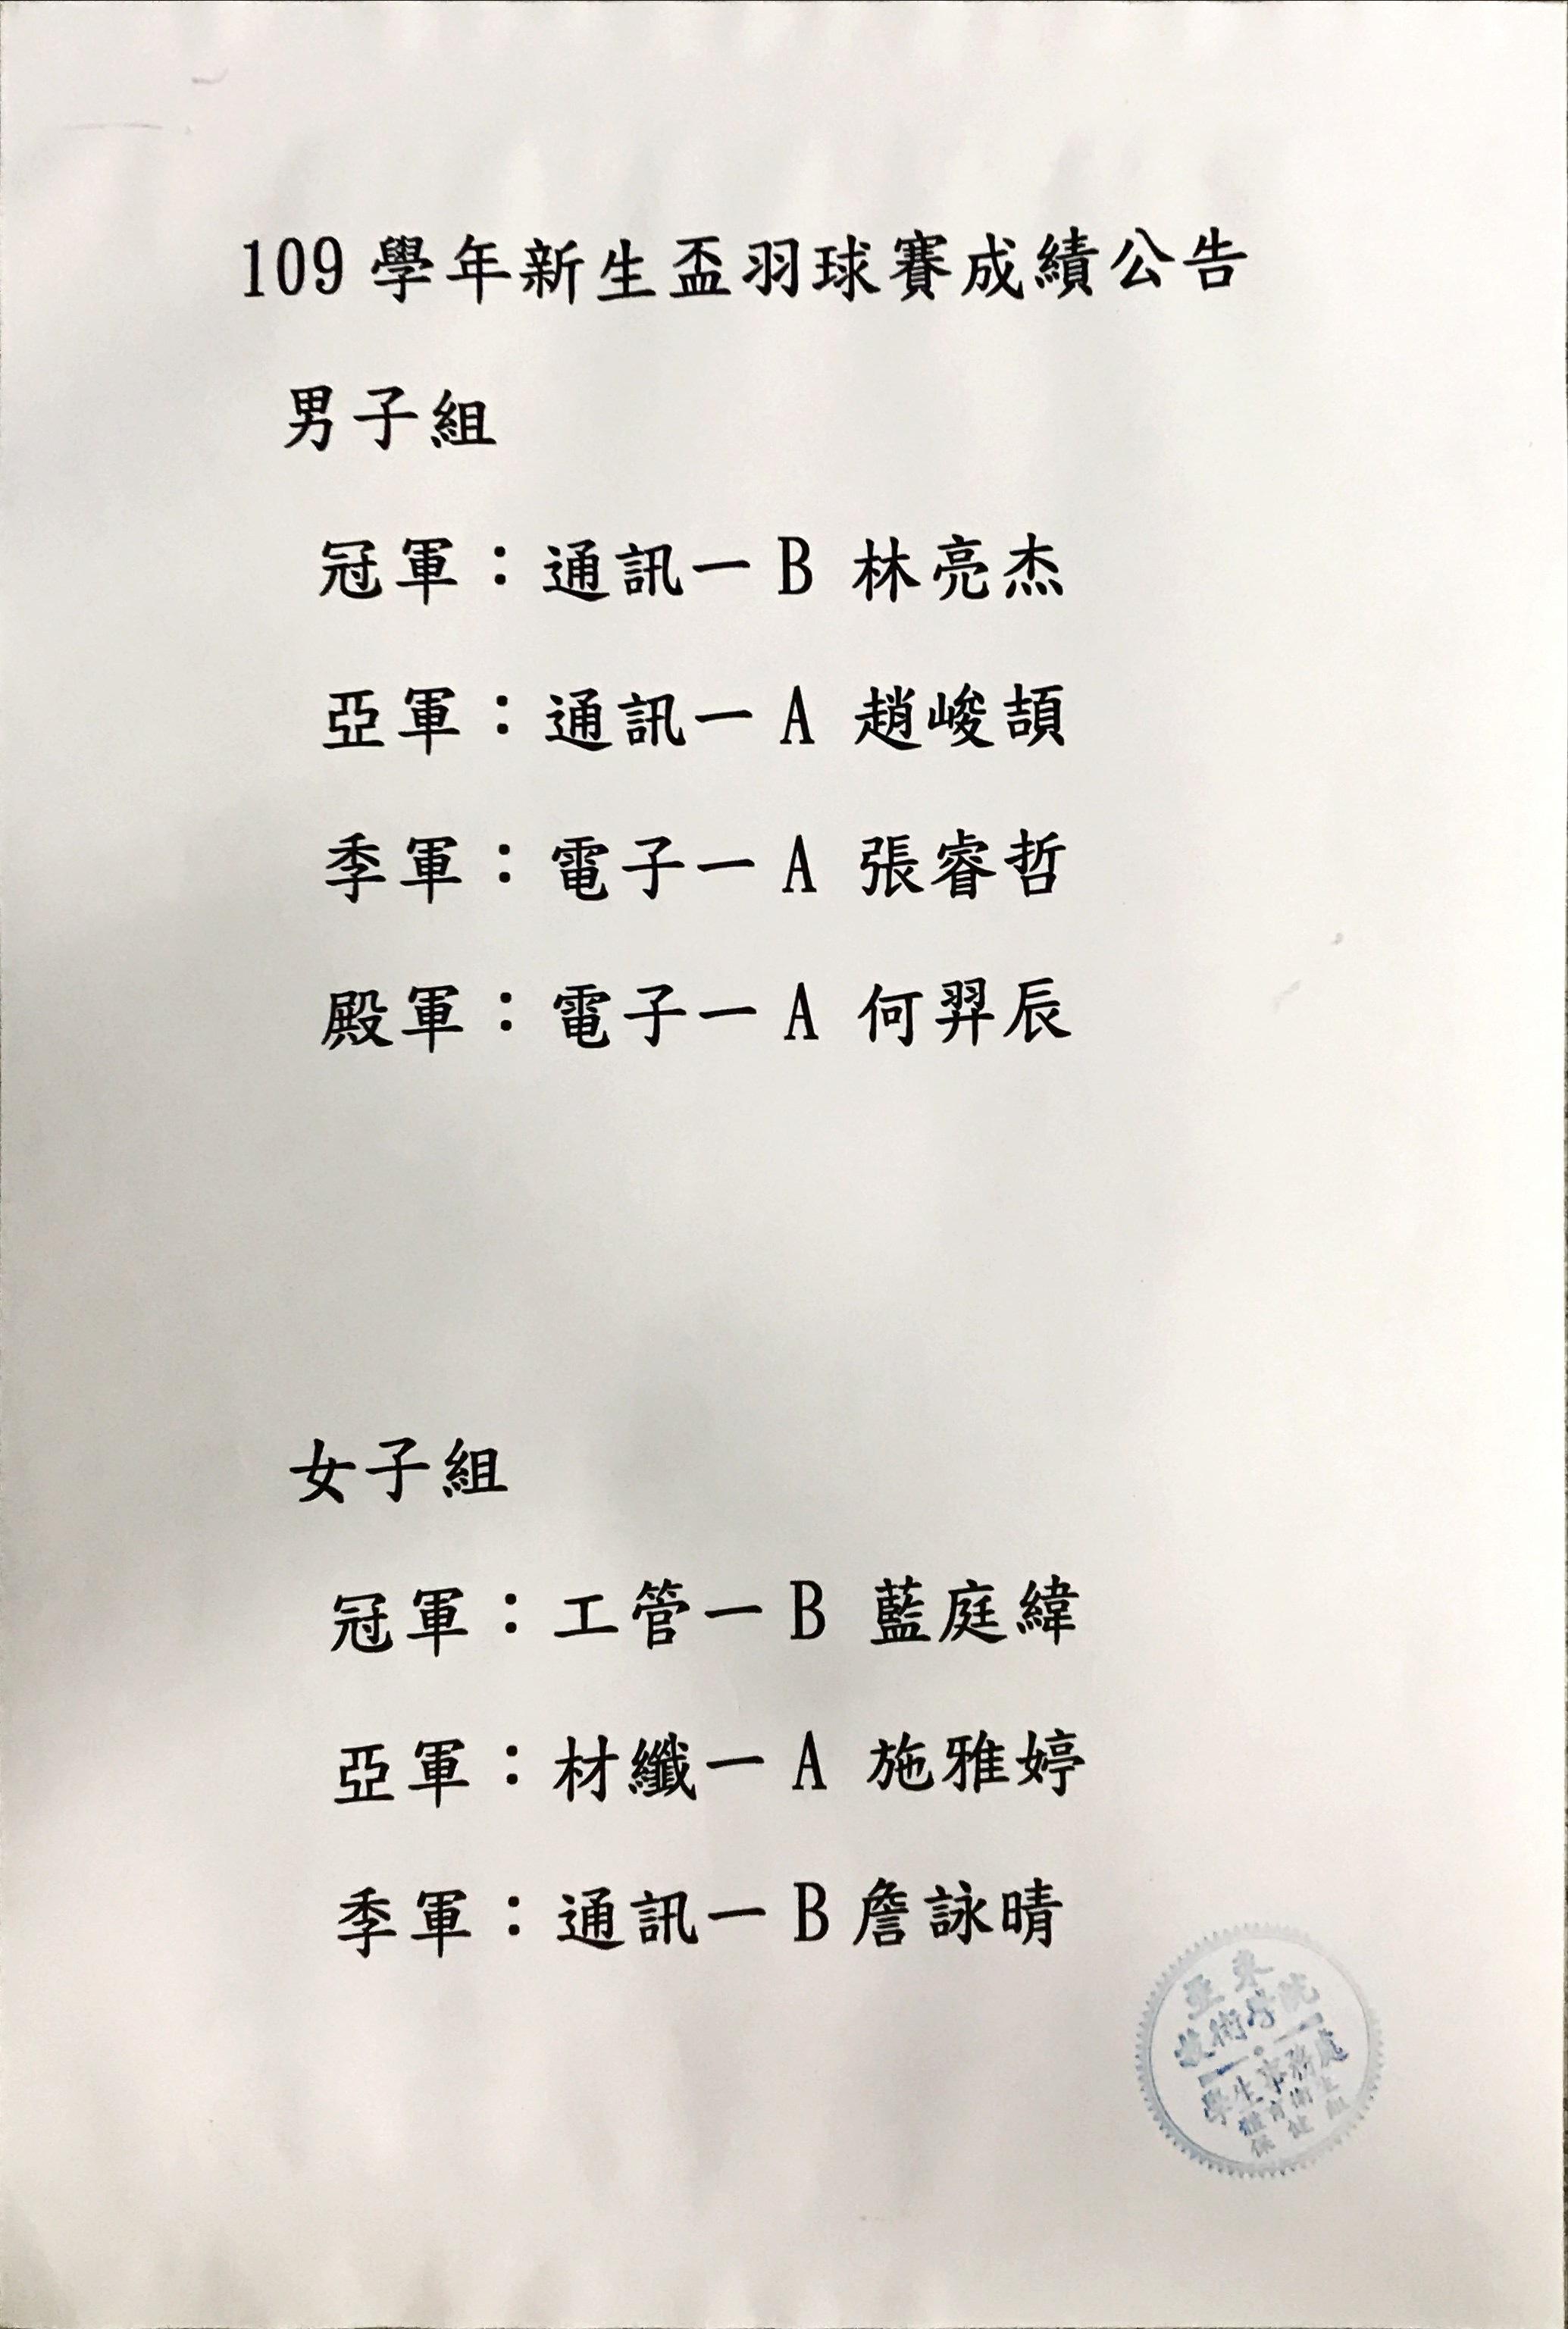 109 學年新生盃羽球賽成績公告
男子組
冠軍：通訊一 B 林亮杰
亞軍：通訊一 A 趙峻頡
季軍：電子一 A 張睿哲
殿軍：電子一 A 何羿辰
女子組
冠軍：工管一 B 藍庭緯
亞軍：材纖一 A 施雅婷
季軍：通訊一 B 詹詠晴
亞東
技術學院
學生事務處
體育衛生
保健組